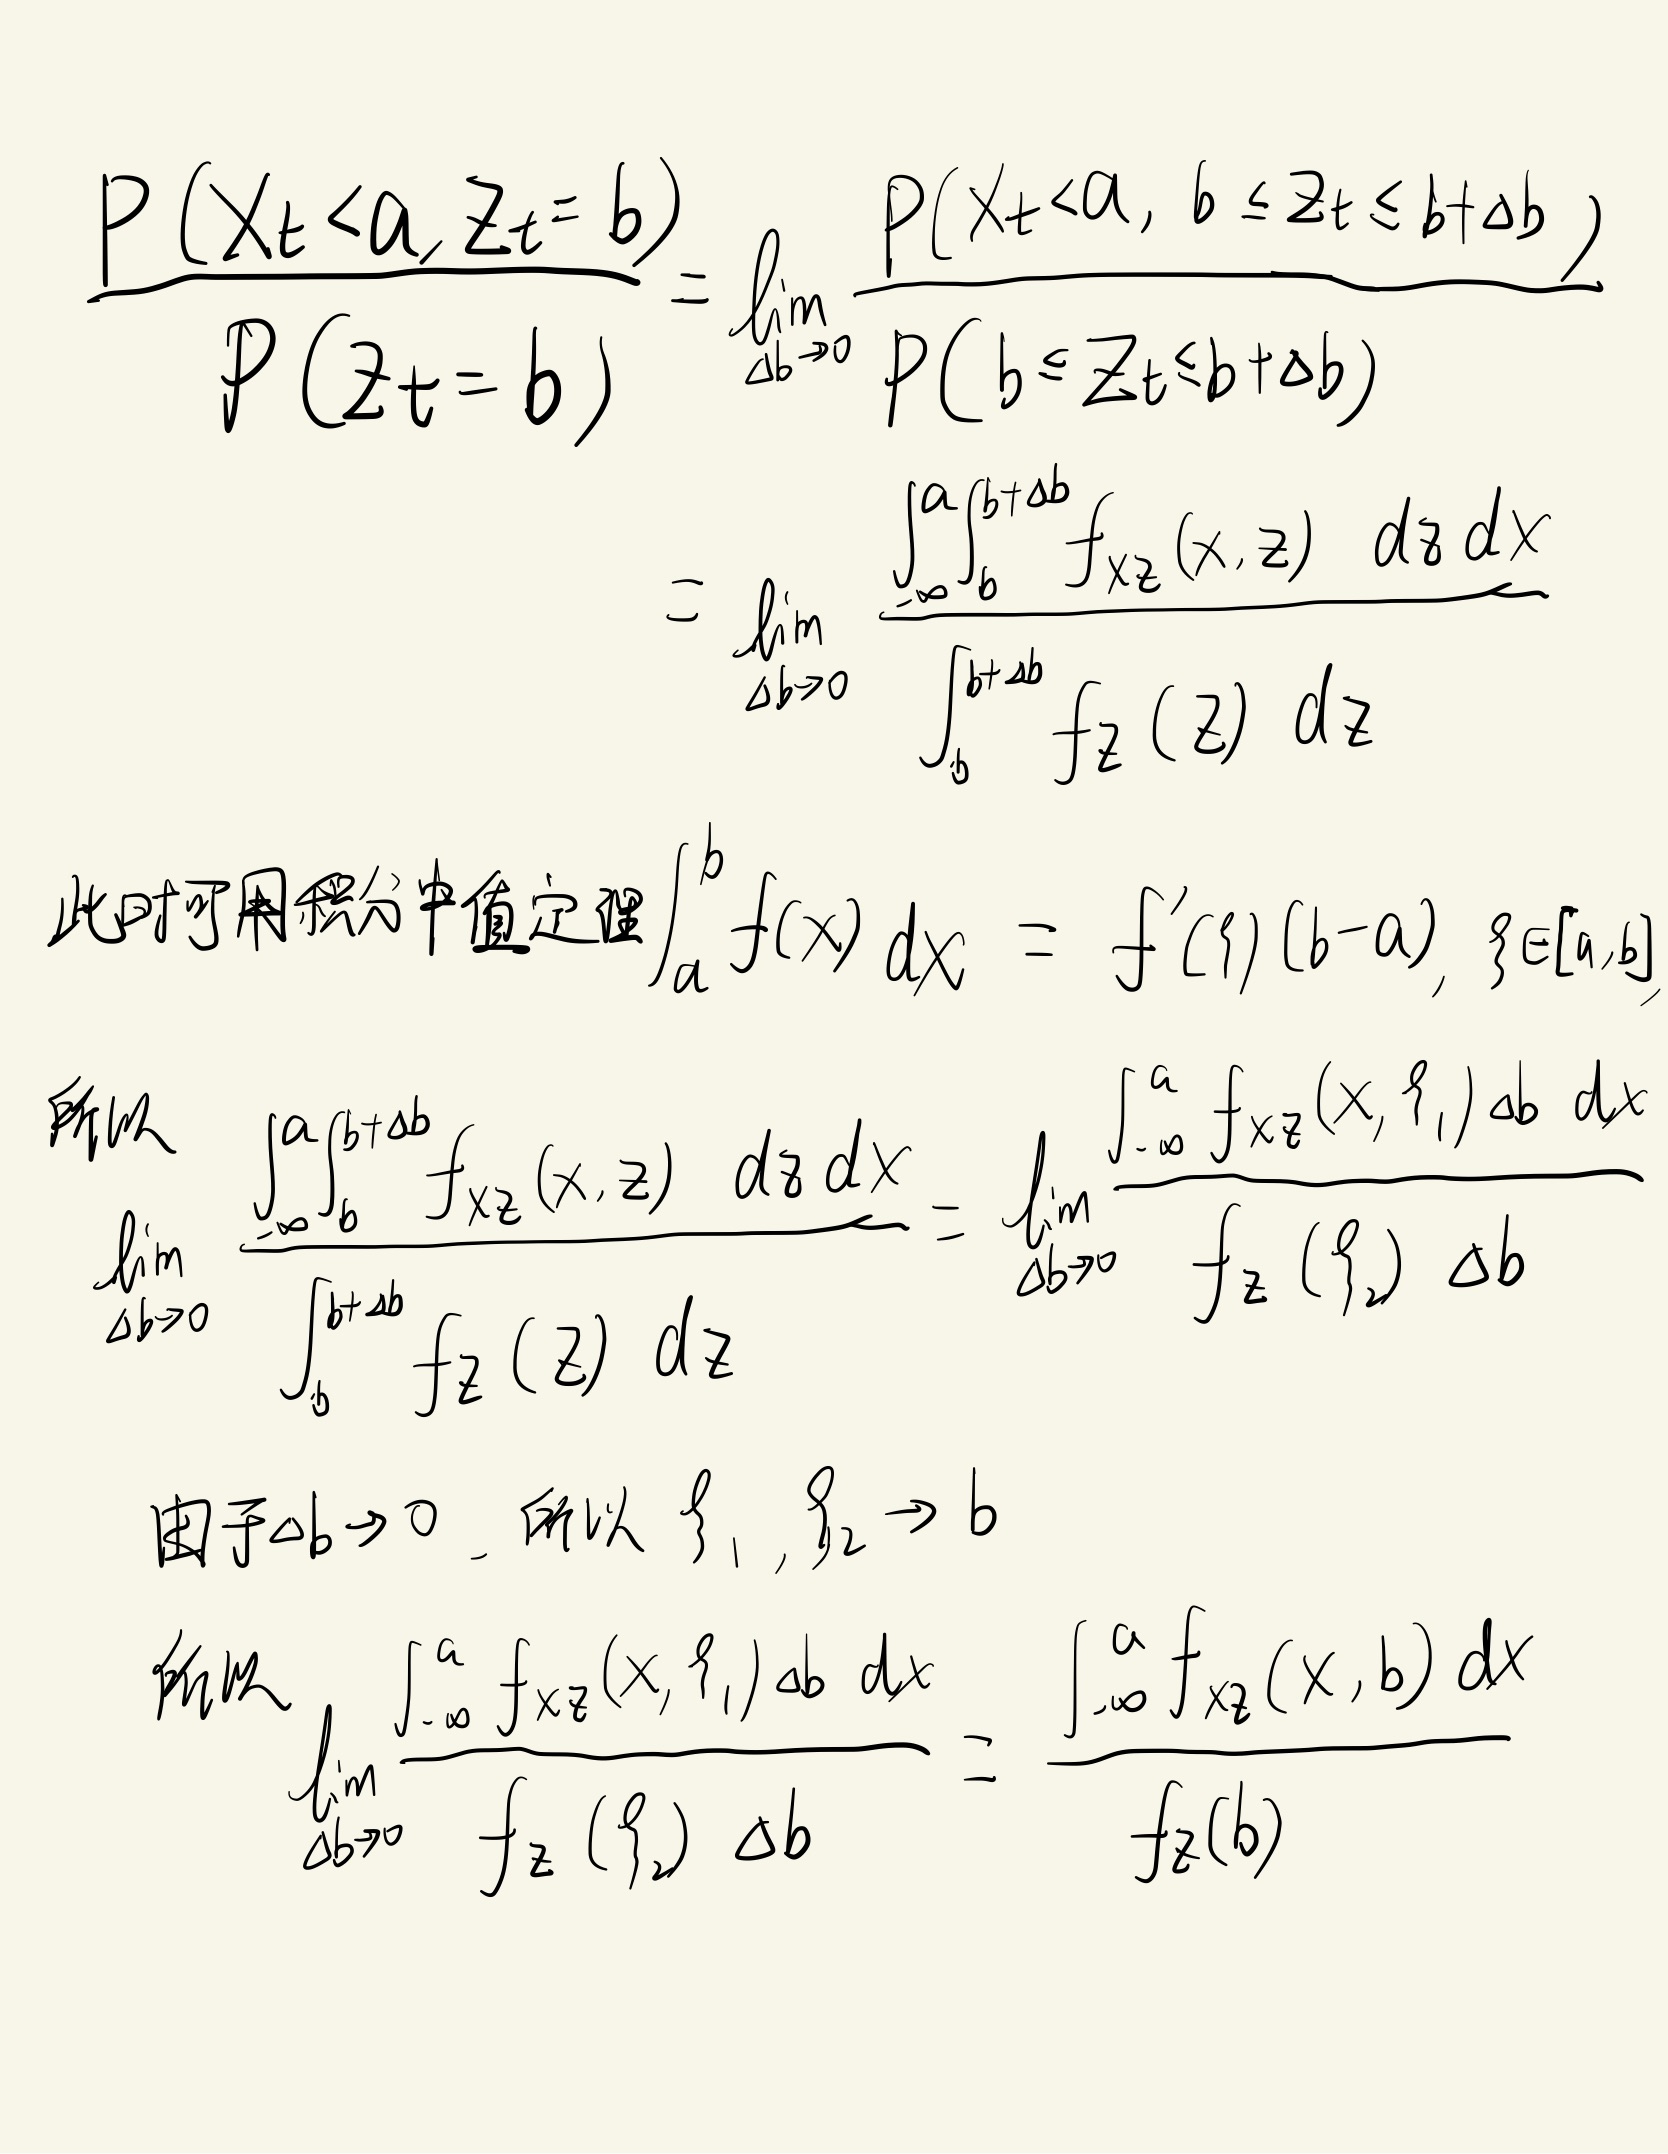 P(X_t<a, Z_t=b) / P(Z_t=b) = lim_{Δb→0} P(X_t<a, b≤Z_t≤b+Δb) / P(b≤Z_t≤b+Δb)
= lim_{Δb→0} ∫_{-∞}^{a}∫_{b}^{b+Δb} f_{XZ}(x,z) dz dx / ∫_{b}^{b+Δb} f_Z(z) dz
此时可用积分中值定理 ∫_{a}^{b} f(x) dx = f'(ξ)(b-a), ξ∈[a,b],
所以
lim_{Δb→0} ∫_{-∞}^{a}∫_{b}^{b+Δb} f_{XZ}(x,z) dz dx / ∫_{b}^{b+Δb} f_Z(z) dz = lim_{Δb→0} ∫_{-∞}^{a} f_{XZ}(x,ξ_1)Δb dx / f_Z(ξ_2) Δb
由于Δb→0, 所以 ξ_1, ξ_2→b
所以 lim_{Δb→0} ∫_{-∞}^{a} f_{XZ}(x,ξ_1)Δb dx / f_Z(ξ_2) Δb = ∫_{-∞}^{a} f_{XZ}(x,b) dx / f_Z(b)